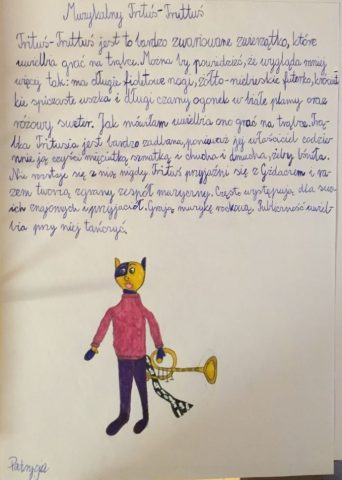 Muzykalny Frituś-Frittuś
Frituś-Frittuś jest to bardzo zwariowane zwierzątko, które
uwielbia grać na trąbce. Można by powiedzieć, że wygląda mniej
więcej tak: ma długie fioletowe nogi, żółto-niebieskie futerko, króciut
kie spiczaste uszka i długi czarny ogonek w białe plamy oraz
różowy sweter. Jak mówiłam uwielbia ono grać na trąbce. Trą-
bka Fritusia jest bardzo zadbana, ponieważ jej właściciel codzien-
nie ją czyści mięciutką szmatką i chucha i dmucha, żeby lśniła.
Nie rozstaje się z nią nigdy. Frituś przyjaźni się z Gżdaczem i ra-
zem tworzą zgrany zespół muzyczny. Często występują dla swo-
ich znajomych i przyjaciół. Grają muzykę rockową. Publiczność uwiel-
bia przy niej tańczyć.
Patrycja